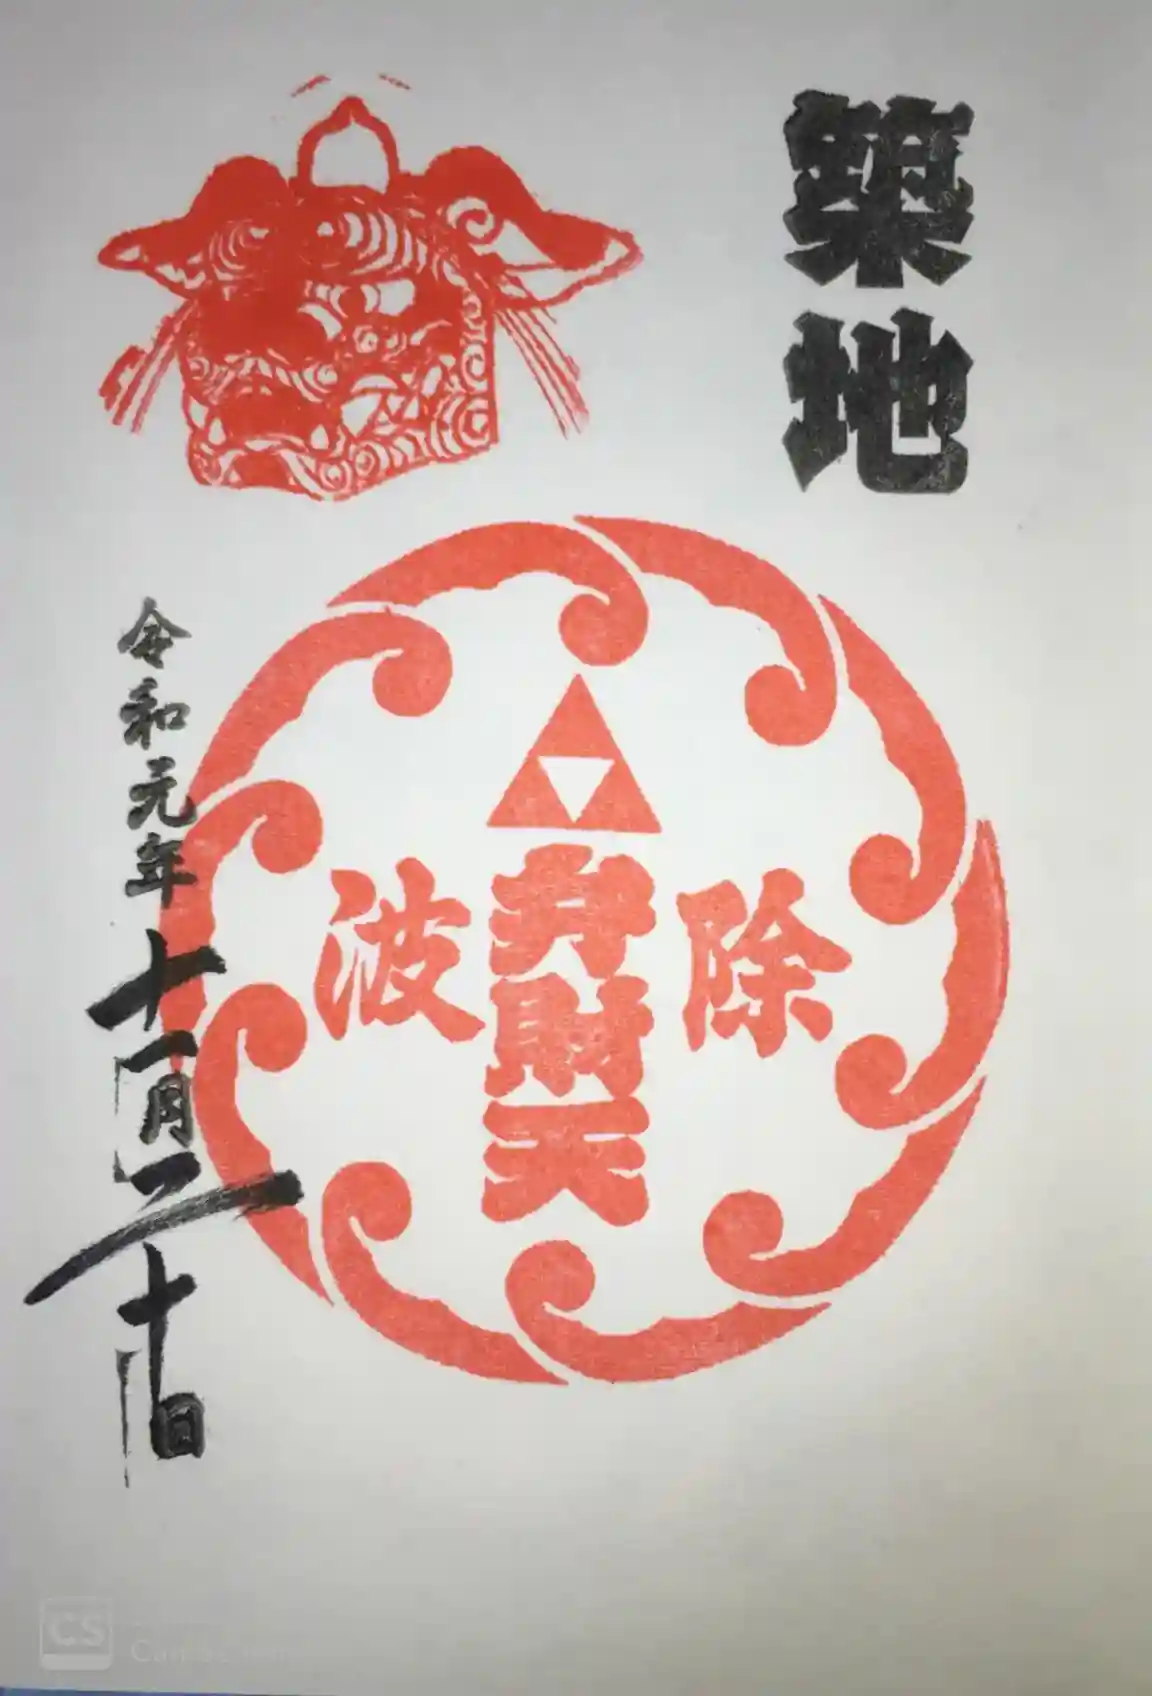 築地
除
弁財天
波
令和元年十一月二十日
CS